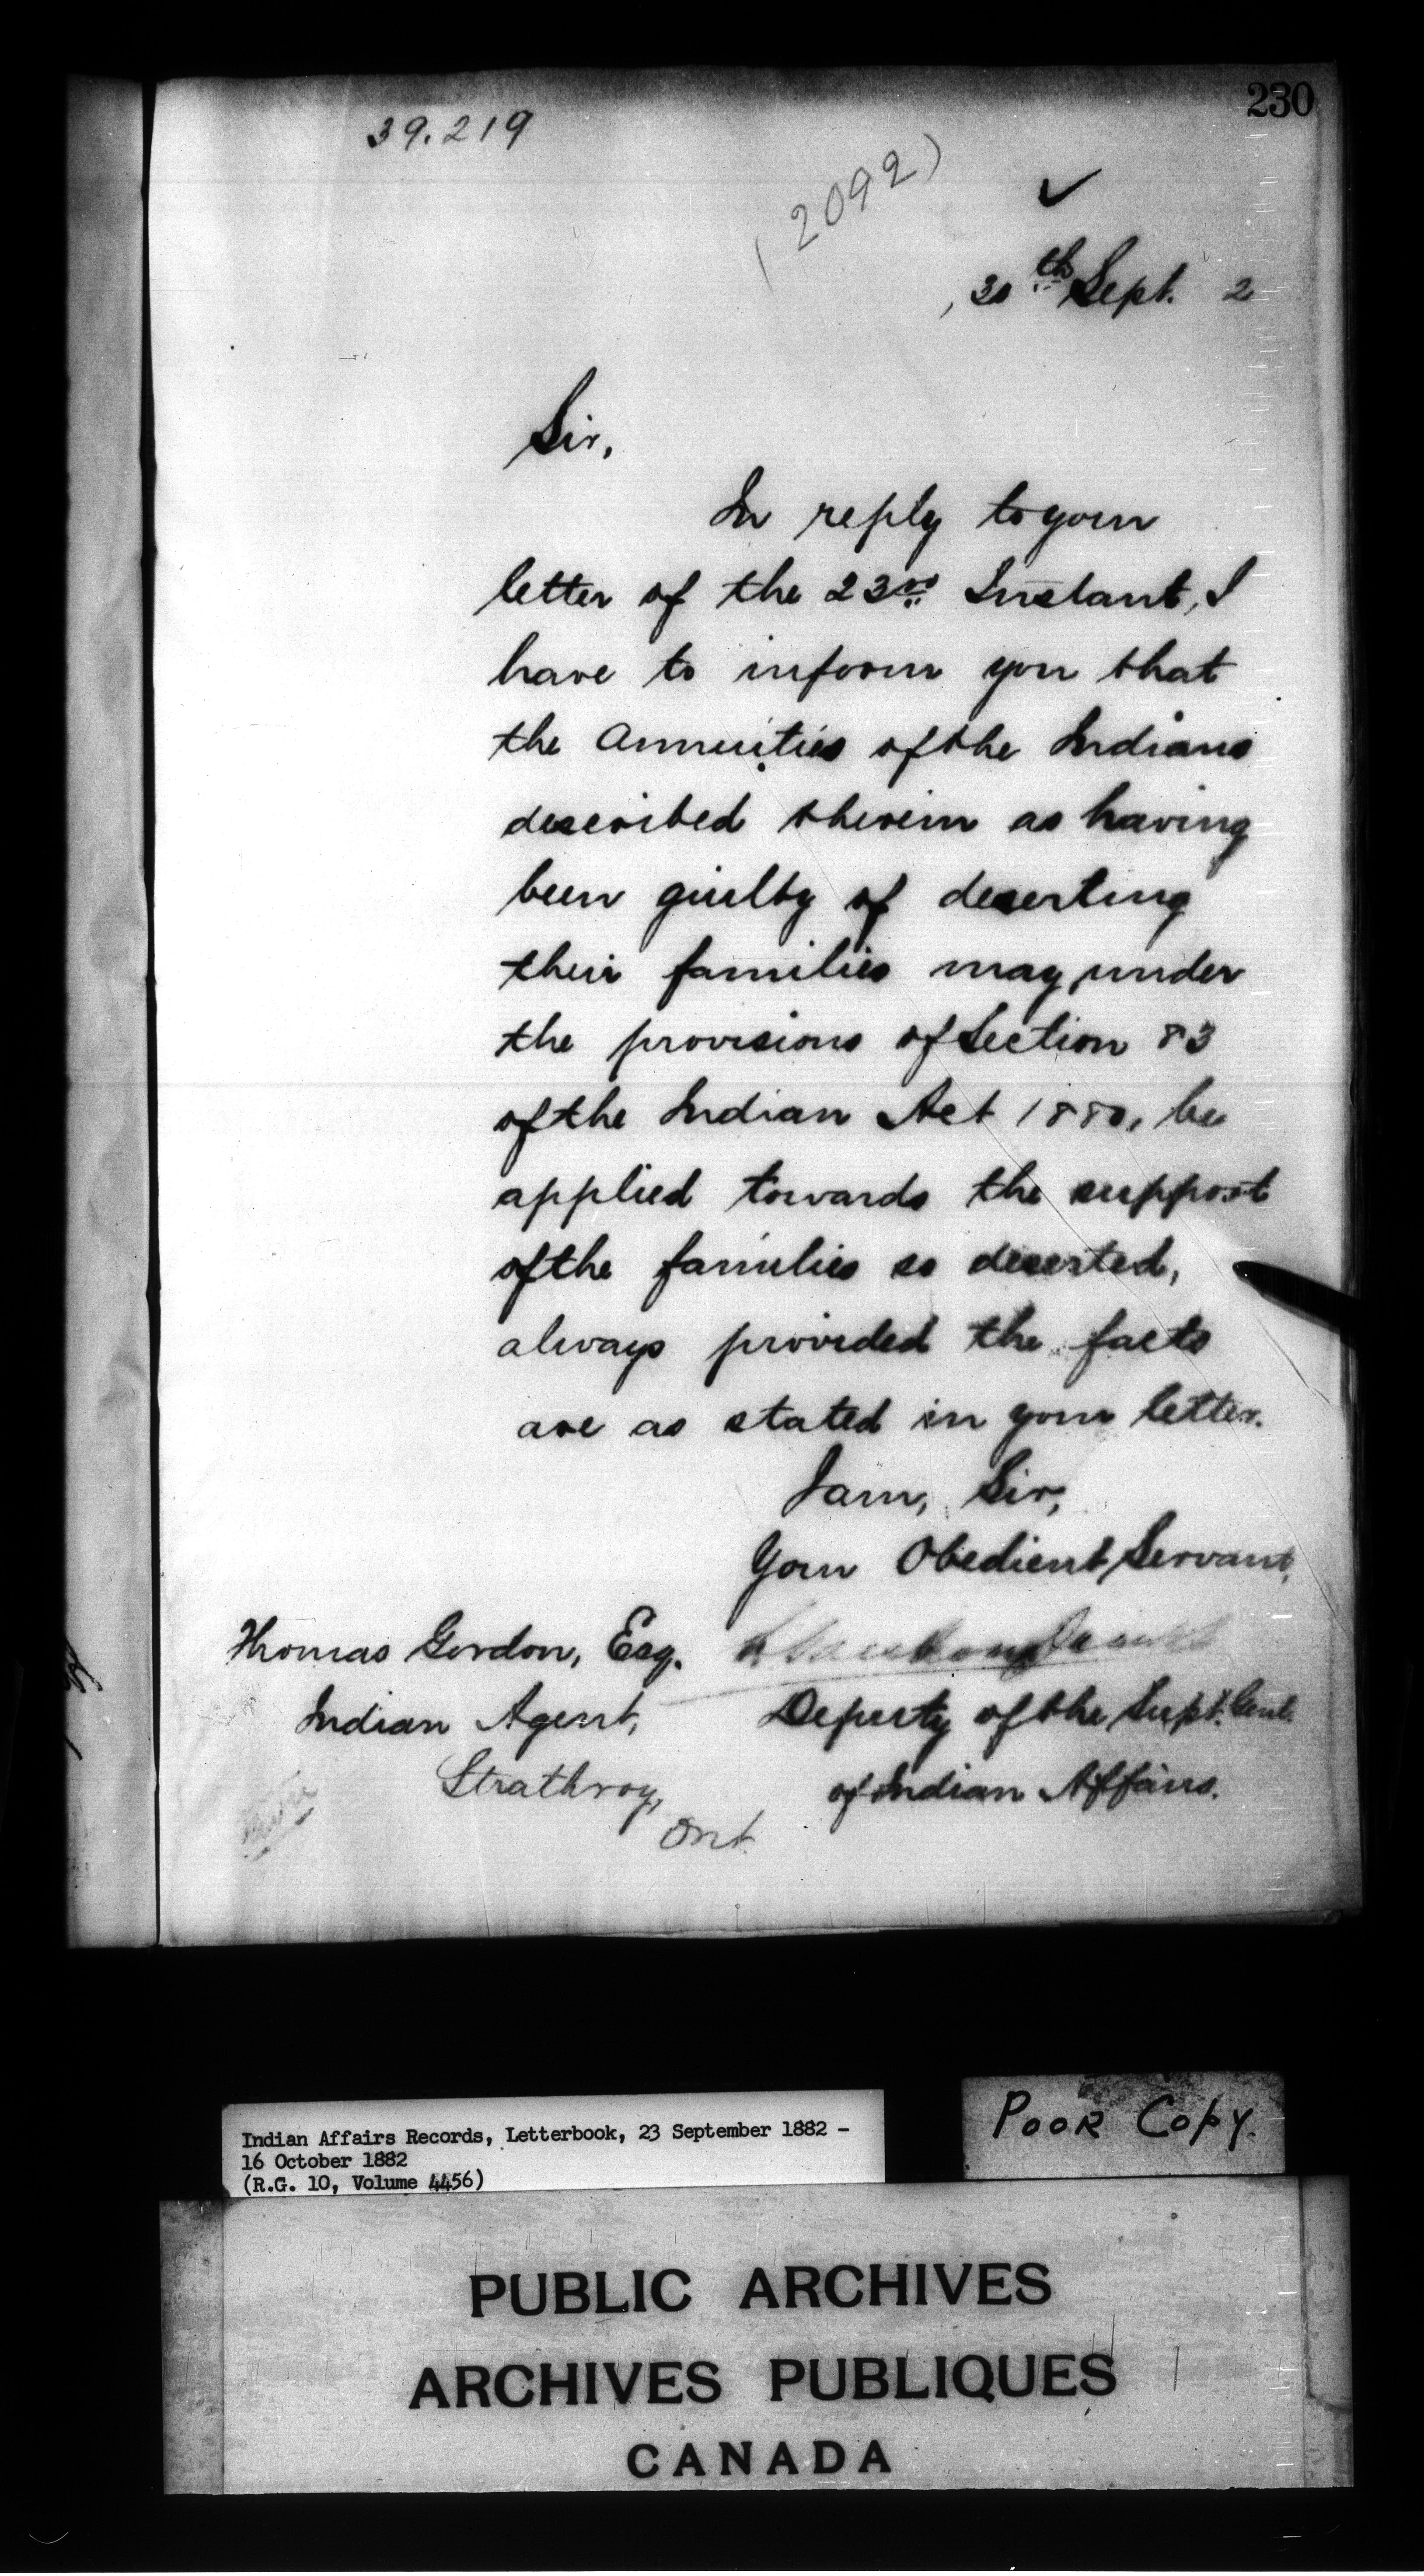 230
39.219
(2092)
, 30th Sept. 2
Sir,
In reply to your
letter of the 23rd Instant, I
have to inform you that
the Annuities of the Indians
described therein as having
been guilty of deserting
their families may, under
the provisions of Section 83
of the Indian Act 1880, be
applied towards the support
of the families so deserted,
always provided the facts
are as stated in your letter.
I am, Sir,
Your Obedient Servant,
Thomas Gordon, Esq.
Indian Agent,
Strathroy,
Ont.
Deputy of the Supt. Genl.
of Indian Affairs.
Indian Affairs Records, Letterbook, 23 September 1882 -
16 October 1882
(R.G. 10, Volume 4456)
POOR COPY.
PUBLIC ARCHIVES
ARCHIVES PUBLIQUES
CANADA